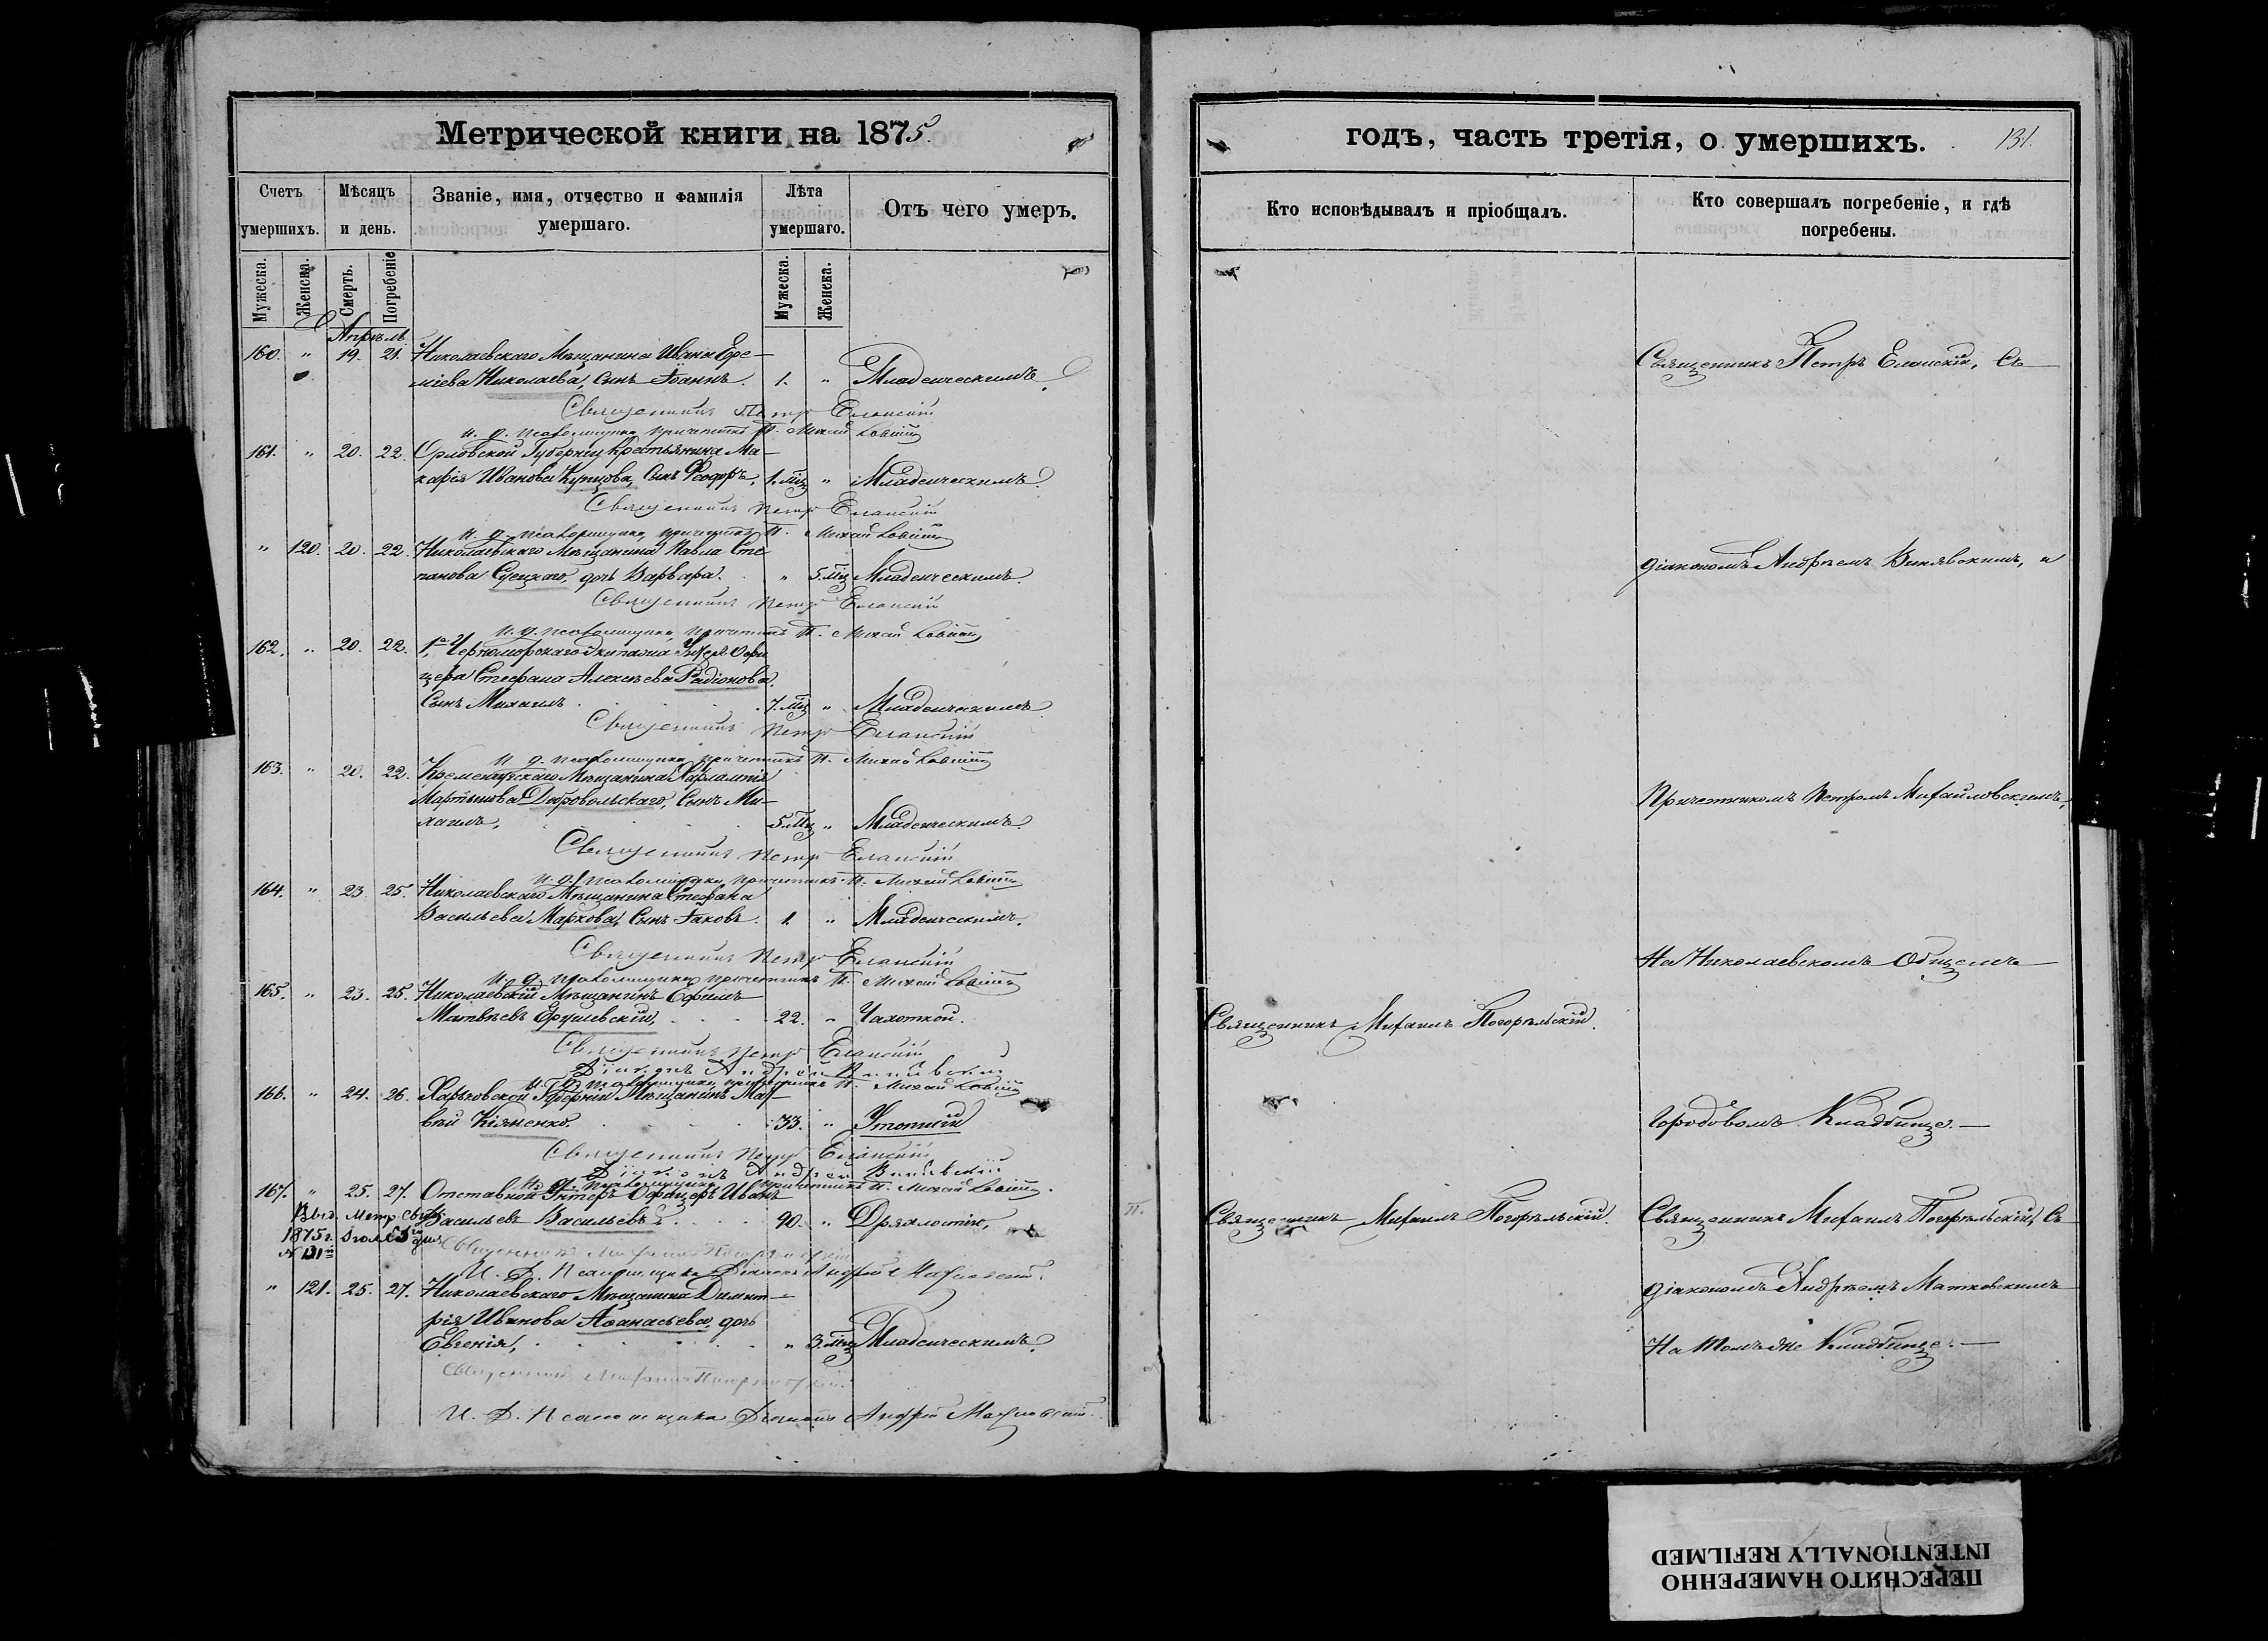 Метрической книги на 1875.
Счетъ умершихъ.
Мѣсяцъ и день.
Званіе, имя, отчество и фамилія умершаго.
Лѣта умершаго.
Отъ чего умеръ.
Мужеска. Женска. Смерть. Погребеніе
Мужеска. Женска.
Апрѣль
160. " 19. 21. Николаевскаго Мѣщанина Ивана Ере-
міева Николаева, сынъ Іоаннъ. 1. " Младенческимъ
Священникъ Петръ Еланскій
и. д. псаломщика причетникъ П. Михайловскій
161. " 20. 22. Орловской Губерніи Крестьянина Ма-
карія Иванова Купцова, Сынъ Феодоръ, 1. мц " Младенческимъ
Священникъ Петръ Еланскій
и. д. псаломщика причетникъ П. Михайловскій
" 120. 20. 22. Николаевскаго Мѣщанина Павла Сте-
панова дочь Варвара. " 5. мц Младенческимъ
Священникъ Петръ Еланскій
и. д. псаломщика причетникъ П. Михайловскій
162. " 20. 22. 1го Черноморскаго Экипажа Унтеръ Офи-
цера Стефана Алексѣева Радіонова,
Сынъ Михаилъ 7. мц " Младенческимъ
Священникъ Петръ Еланскій
и. д. псаломщика причетникъ П. Михайловскій
163. " 20. 22. Кременчугскаго Мѣщанина Харлампія
Мартынова Добровольскаго, Сынъ Ми-
хаилъ, 5. мц " Младенческимъ
Священникъ Петръ Еланскій
и. д. псаломщика причетникъ П. Михайловскій
164. " 23. 25. Николаевскаго Мѣщанина Стефана
Васильева Маркова, Сынъ Іаковъ. 1. " Младенческимъ.
Священникъ Петръ Еланскій
и. д. псаломщика причетникъ П. Михайловскій
165. " 23. 25. Николаевскій Мѣщанинъ Ефимъ
Матвѣевъ 22. " Чахоткой.
Священникъ Петръ Еланскій
Діаконъ Андрей
и. д. псаломщика причетникъ П. Михайловскій
166. " 24. 26. Харьковской Губерніи Мѣщанинъ Мат-
вѣй Кіяненко. 33. "
Священникъ Петръ Еланскій
Діаконъ Андрей
и. д. псаломщика причетникъ П. Михайловскій.
167. " 25. 27. Отставной Унтеръ Офицеръ Иванъ
Васильевъ Васильевъ 90. " Дряхлостію,
Выд. Метр. Свид.
1875 г. Іюля 5 дня
№ 131
Священникъ Михаилъ Погорѣльскій
И. Д. Псаломщика Діаконъ Андрей Матковскій.
" 121. 25. 27. Николаевскаго Мѣщанина Димит-
рія Иванова Аѳанасьева, дочь
Евгенія, " 3. мц Младенческимъ,
Священникъ Михаилъ Погорѣльскій
И. Д. Псаломщика Діаконъ Андрей Матковскій.
годъ, часть третія, о умершихъ.
131.
Кто исповѣдывалъ и пріобщалъ.
Кто совершалъ погребеніе, и гдѣ погребены.
Священникъ Петръ Еланскій, Съ
діакономъ Андреемъ Винявскимъ, и
Причетникомъ Петромъ Михайловскимъ,
На Николаевскомъ Общемъ
Священникъ Михаилъ Погорѣльскій.
Городовомъ Кладбище.
Священникъ Михаилъ Погорѣльскій.
Священникъ Михаилъ Погорѣльскій, Съ
діакономъ Андреемъ Матковскимъ
На томъ же Кладбище.
ПЕРЕСНЯТО НАМЕРЕННО
INTENTIONALLY REFILMED